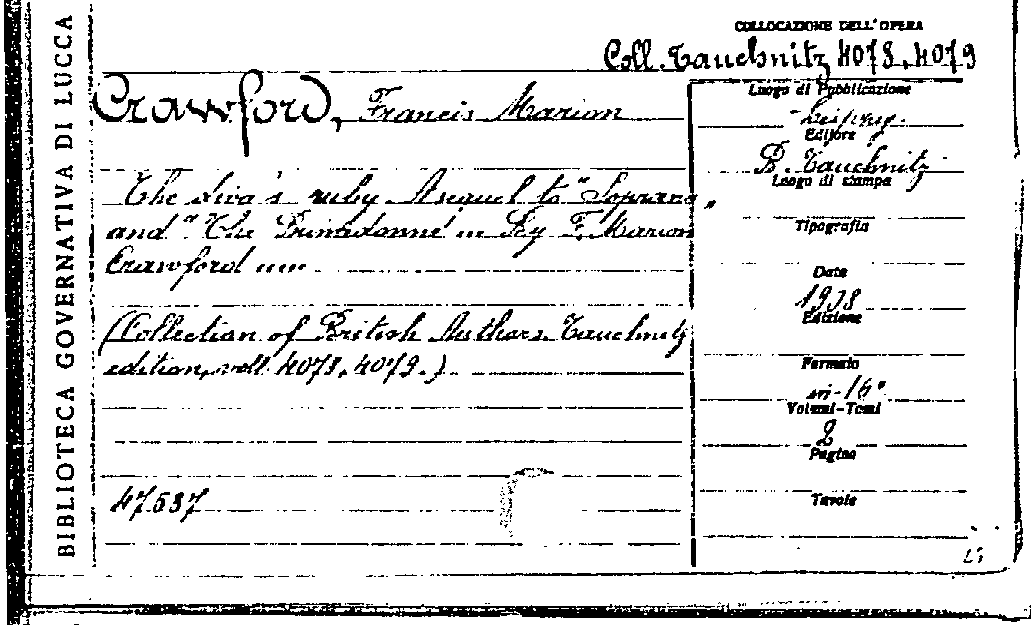 BIBLIOTECA GOVERNATIVA DI LUCCA
COLLOCAZIONE DELL'OPERA
Coll. Tauchnitz 4078, 4079
Crawford, Francis Marion
The diva's ruby A sequel to "Soprano„
and "The Primadonna" By F. Marion
Crawford
(Collection of British Authors Tauchnitz
edition, voll. 4078, 4079.)
47537
Luogo di Pubblicazione
Leipzig.
Editore
B. Tauchnitz
Luogo di stampa
Tipografia
Data
1908
Edizione
Formato
in-16°
Volumi-Tomi
2
Pagine
Tavole